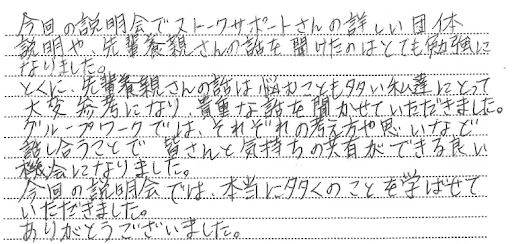 今回の説明会でストークサポートさんの詳しい団体
説明や、先輩養親さんの話を聞けたのはとても勉強に
なりました。
とくに、先輩養親さんの話は悩むことも多い私達にとって
大変参考になり、貴重な話を聞かせていただきました。
グループワークでは、それぞれの考え方や思いなど
話し合うことで、皆さんと気持ちの共有ができる良い
機会になりました。
今回の説明会では、本当に多くのことを学ばせて
いただきました。
ありがとうございました。